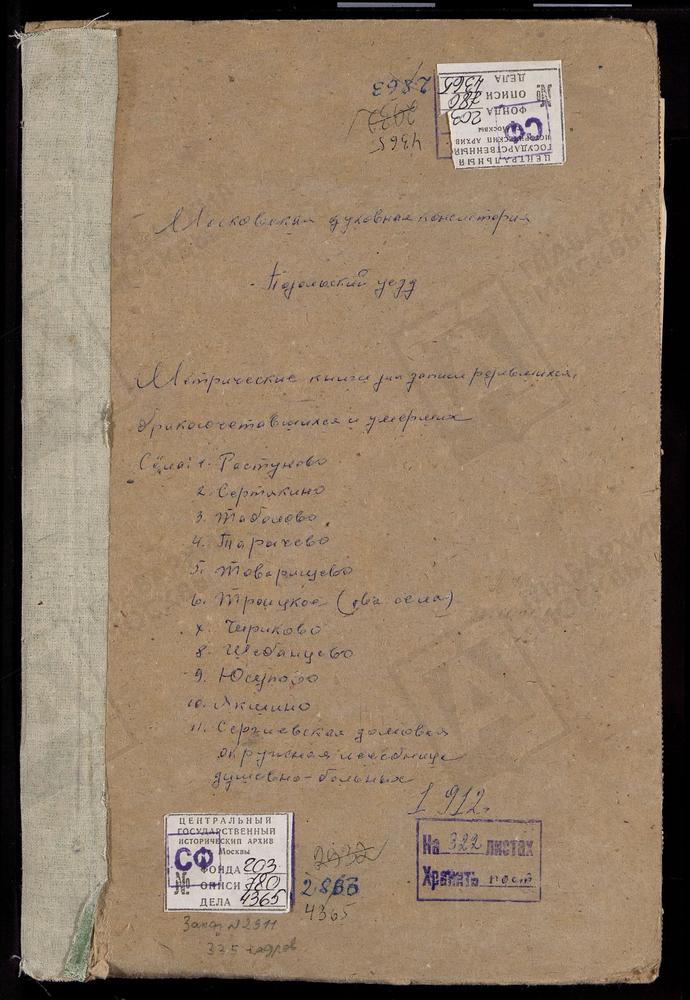 2863
2032
4365
ЦЕНТРАЛЬНЫЙ
ГОСУДАРСТВЕННЫЙ
ИСТОРИЧЕСКИЙ АРХИВ
Москвы
СФ
ФОНДА 203
№ ОПИСИ 780
ДЕЛА 4365
Московская духовная консистория
Подольский уезд
Метрические книги для записи родившихся,
бракосочетавшихся и умерших
Сёла: 1. Растуново
2. Сертякино
3. Таболово
4. Тарычево
5. Товарищево
6. Троицкое (два села)
7. Чириково
8. Шебанцево
9. Юсупово
10. Якшино
11. Сергиевская домовая
окружная лечебница
душевно-больных
1912г.
ЦЕНТРАЛЬНЫЙ
ГОСУДАРСТВЕННЫЙ
ИСТОРИЧЕСКИЙ АРХИВ
г. Москвы
СФ
ФОНДА 203
№ ОПИСИ 780
ДЕЛА 4365
2032
2863
4365
На 322 листах
Хранить пост
Заказ №2911
335 кадров